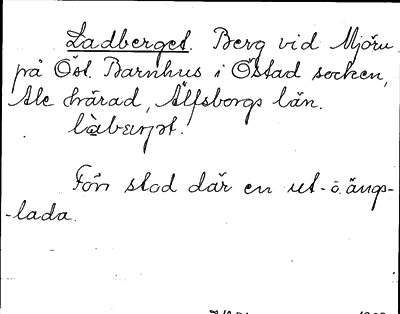 Ladberget. Berg vid Mjörn
på Öst. Barnhus i Östad socken,
Ale härad, Älfsborgs län.
Förr stod där en ut- o. ängs-
-lada.